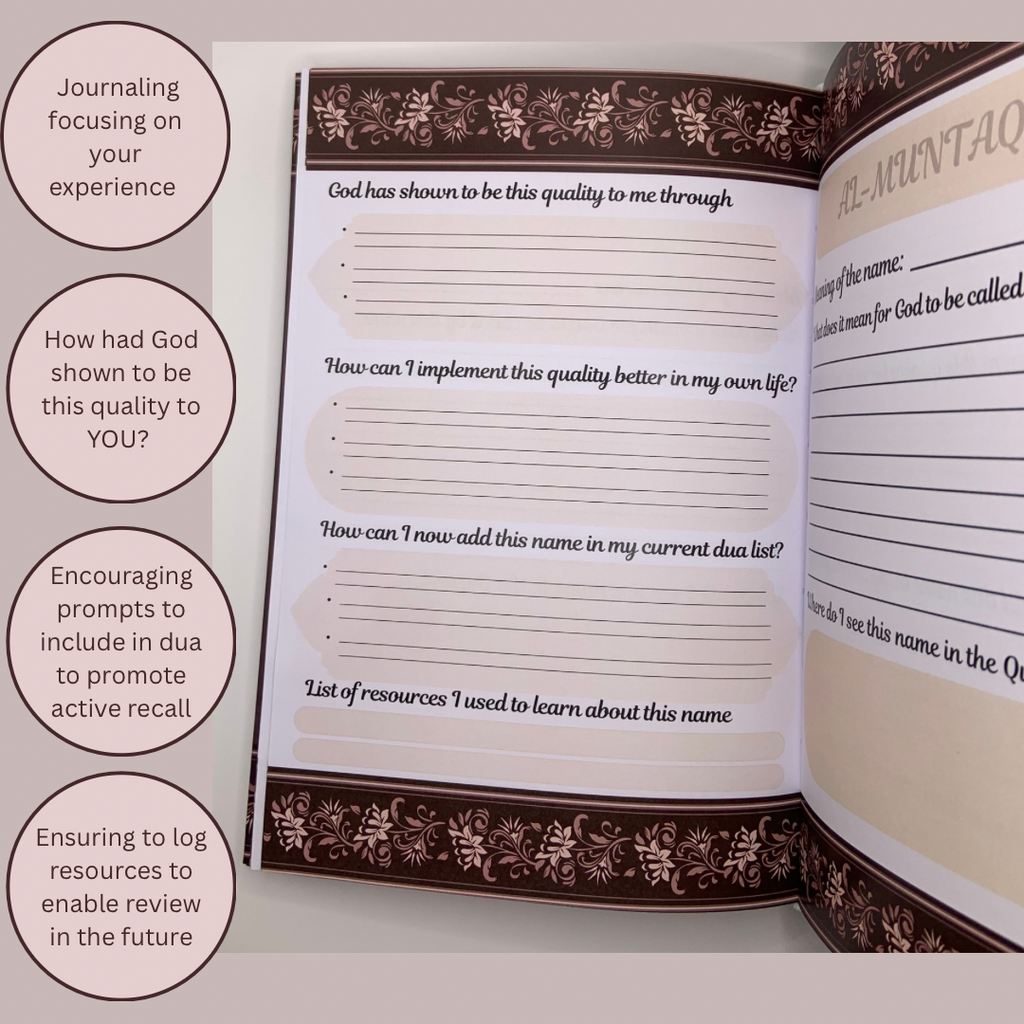 Journaling
focusing on
your
experience
How had God
shown to be
this quality to
YOU?
Encouraging
prompts to
include in dua
to promote
active recall
Ensuring to log
resources to
enable review
in the future
God has shown to be this quality to me through
How can I implement this quality better in my own life?
How can I now add this name in my current dua list?
List of resources I used to learn about this name
AL-MUNTAQ
of the name:
does it mean for God to be called
do I see this name in the